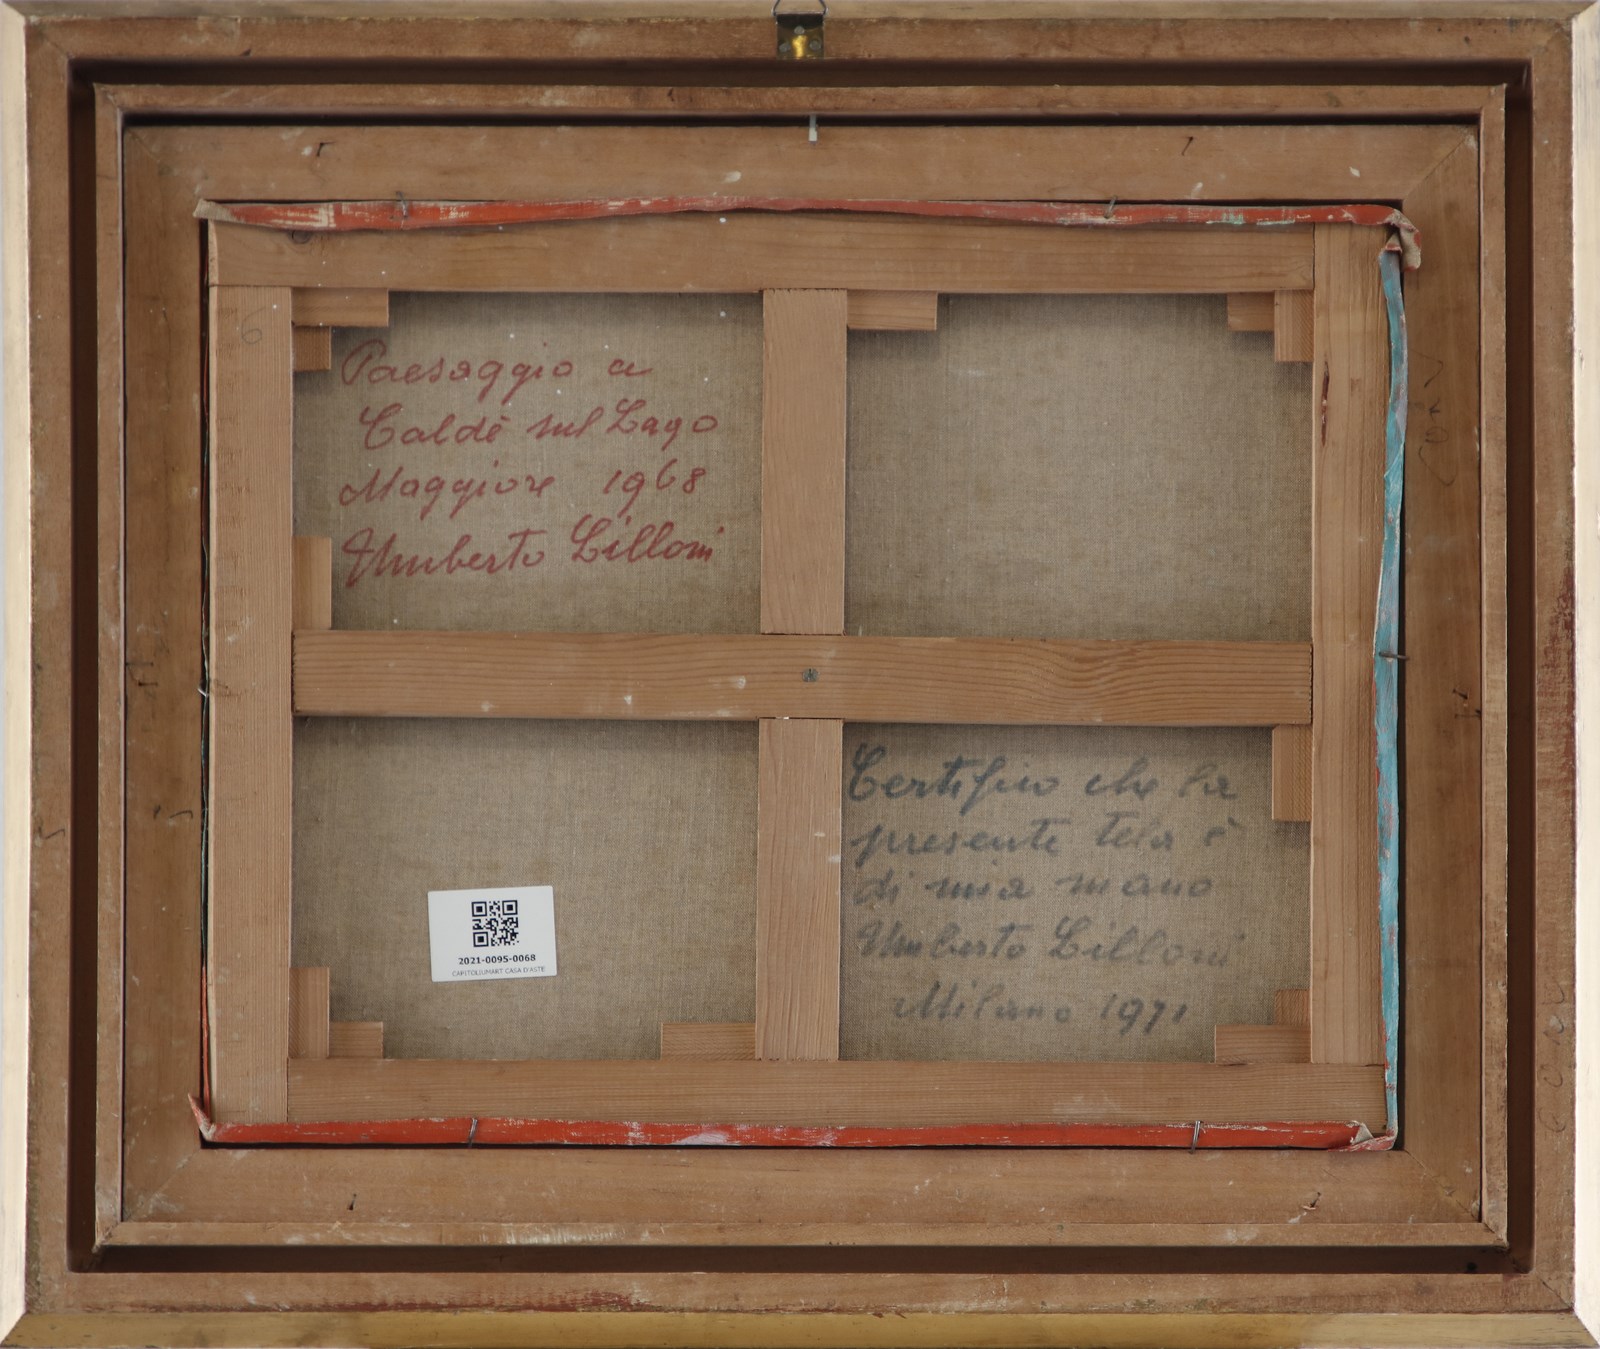 Paesaggio a
Caldè sul Lago
Maggiore 1968
Umberto Lilloni
6
Certifico che la
presente tela è
di mia mano
Umberto Lilloni
Milano 1971
2021-0095-0068
CAPITOLIUMART CASA D'ASTE